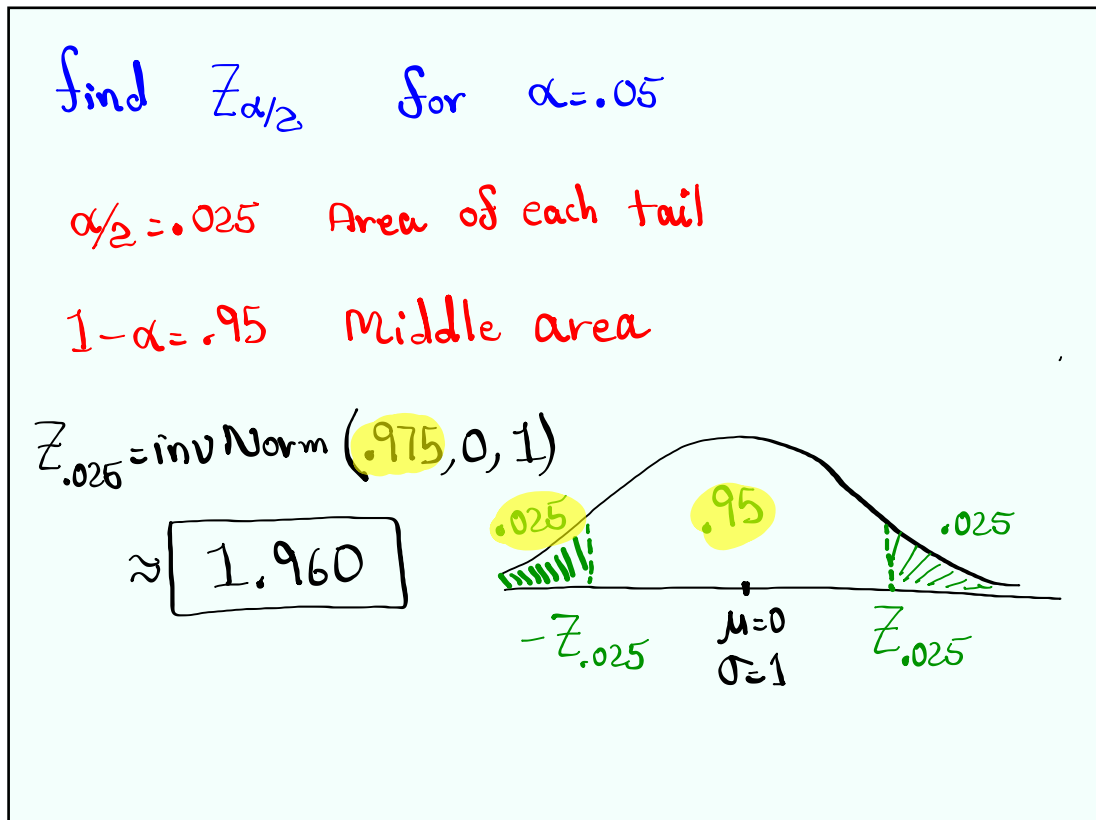 find Zα/2 for α=.05
α/2=.025 Area of each tail
1-α=.95 Middle area
Z.025=invNorm(.975,0,1)
≈ 1.960
.025 .95 .025
-Z.025 μ=0 Z.025
σ=1